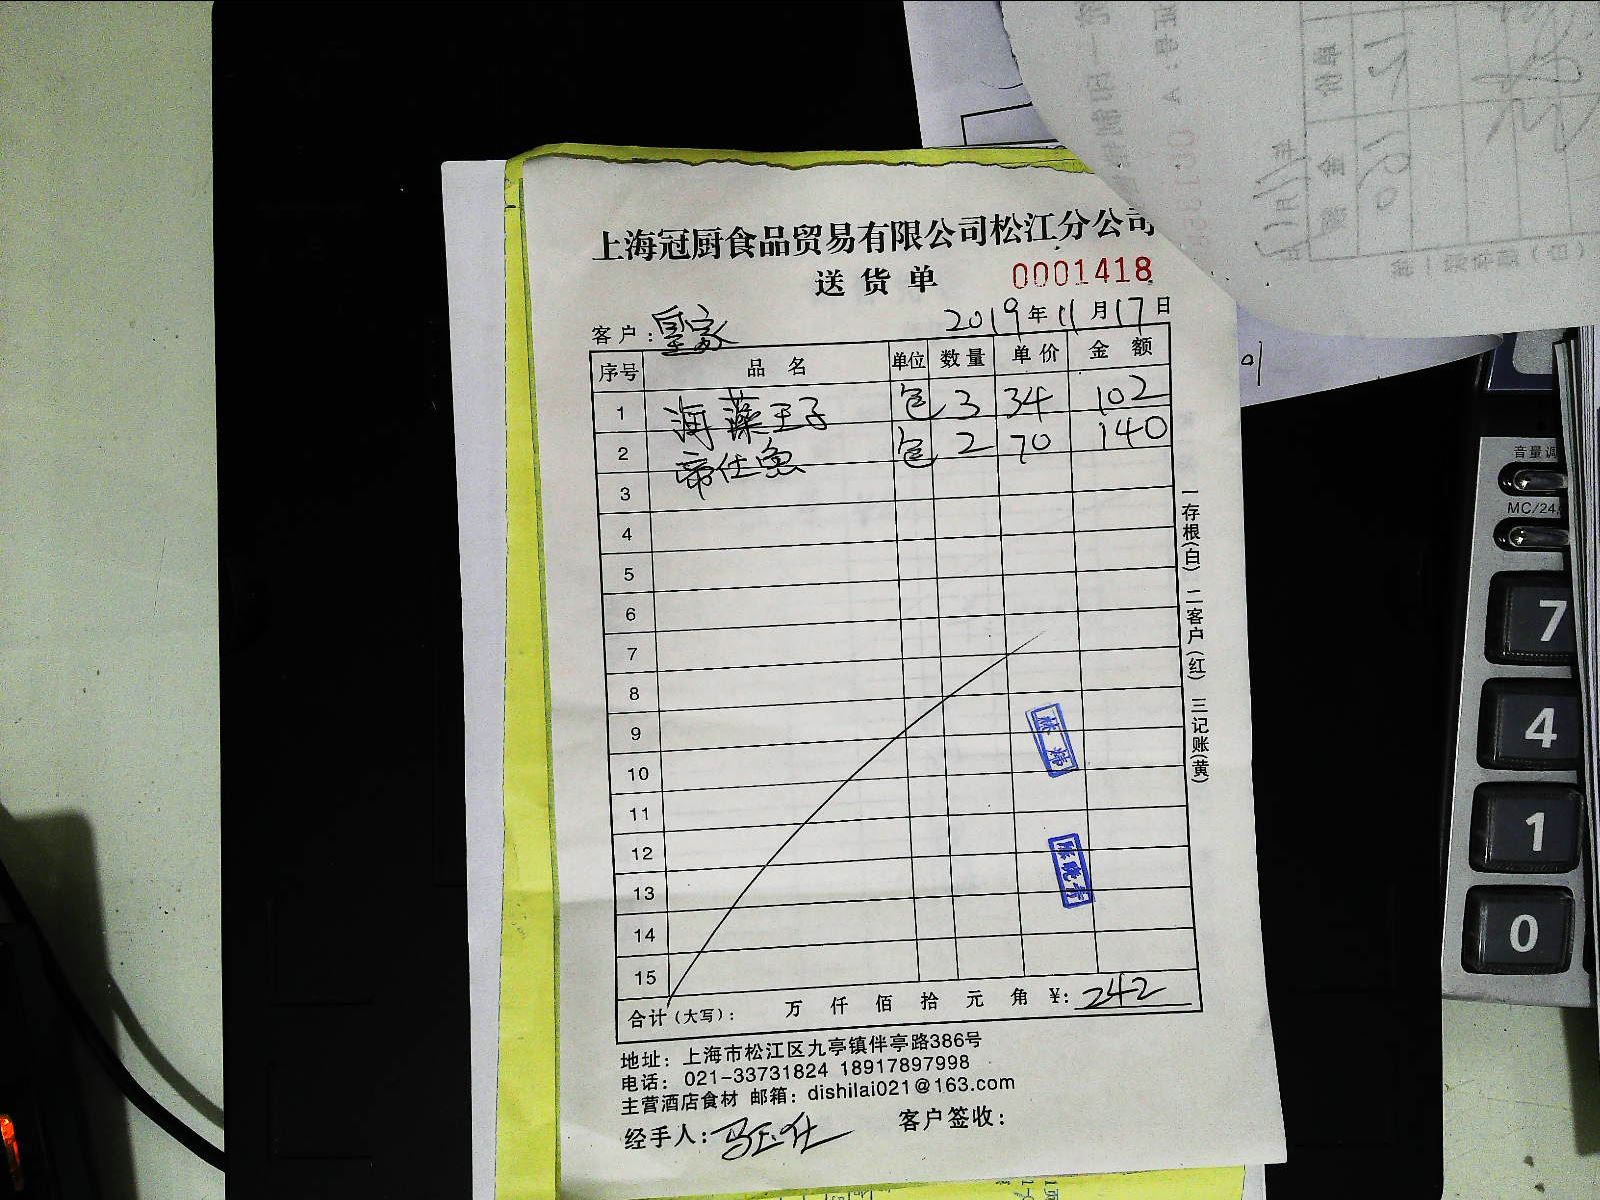 上海冠厨食品贸易有限公司松江分公司
送货单 0001418
客户：皇家 2019年11月17日
序号 品名 单位 数量 单价 金额
1 海藻王子 包 3 34 102
2 帝仕鱼 包 2 70 140
3
4
5
6
7
8
9
10
11
12
13
14
15
合计（大写）： 万 仟 佰 拾 元 角 ¥：242
地址：上海市松江区九亭镇伴亭路386号
电话：021-33731824 18917897998
主营酒店食材 邮箱：dishilai021@163.com
经手人：马玉仕 客户签收：
一存根（白） 二客户（红） 三记账（黄）
音量调
MC/24
7
4
1
0